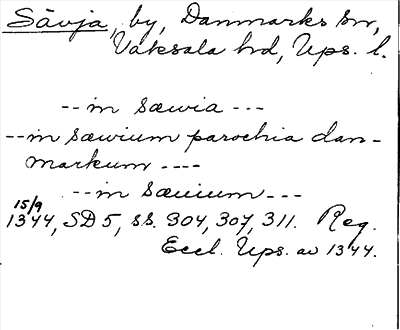 Sävja, by, Danmarks sn,
Vaksala hd, Ups. l.
--in sæwia ---
--in sæwium parochia dan-
markum ----
--in sæuium ---
15/9
1344, SD 5, ss. 304, 307, 311. Reg.
Eccl. Ups. av 1344.